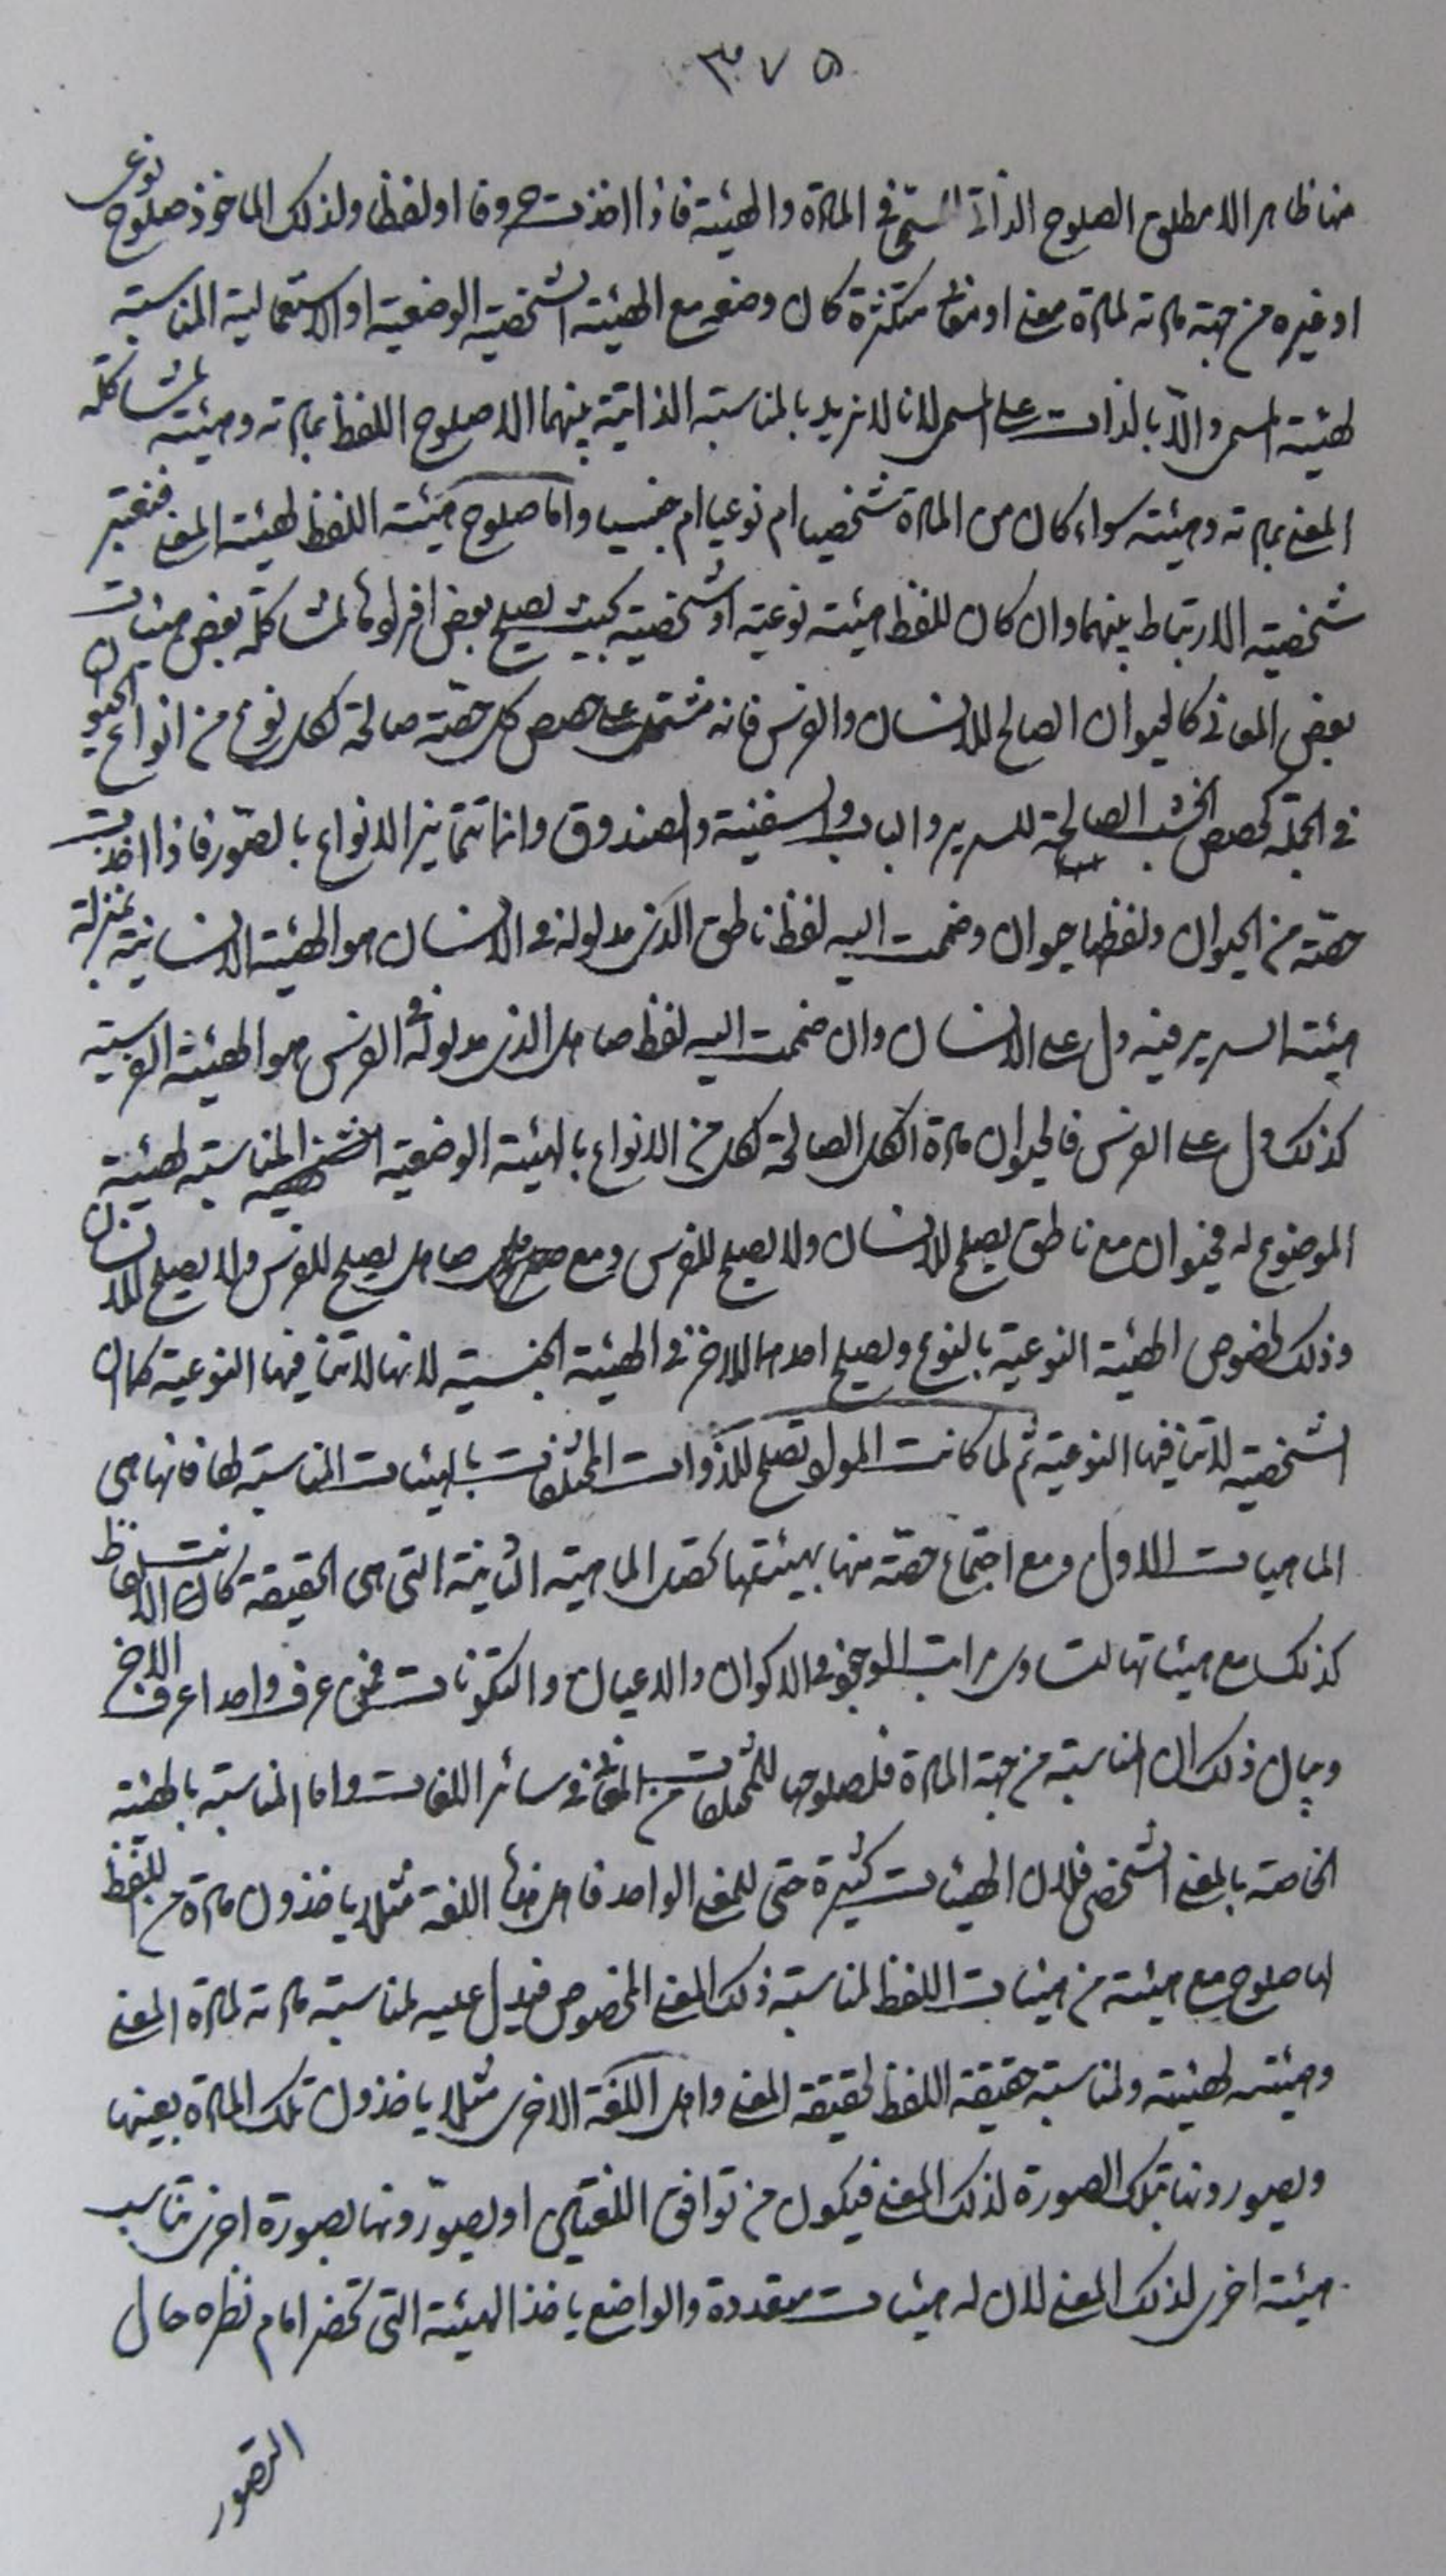 ٣٧٥
منا ظاهرا لا مطلق الصلوح الذاتي في المادة والهيئة فاذا اخذت حروفا او لفظا ولذلك الماخوذ صلوح نوعي
او غيره من جهة مادته لمادة معنى او متكثرة كان وضعه مع الهيئة الشخصية الوضعية او الاستعمالية المناسبة
لهيئة المسمى والا بالذات على المسمى لانا لا نريد بالمناسبة الذاتية بينهما الا صلوح اللفظ بمادته وهيئته لمشاكلة
المعنى بمادته وهيئته سواء كان من المادة شخصيا ام نوعيا ام جنسيا واما صلوح هيئة اللفظ لهيئة المعنى فنعتبر
شخصية الارتباط بينهما وان كان للفظ هيئة نوعية او شخصية بحيث يصلح بعض افرادها لمشاكلة بعض هيئات
بعض المعاني كالحيوان الصالح للانسان والفرس فانه مشتمل على حصص كل حصة صالحة لكل نوع من انواع الحيوان
في الجملة كحصص الخشب الصالحة للسرير والباب والسفينة والصندوق وانما تتمايز الانواع بالصور فاذا اخذت
حصة من الحيوان ولفظها حيوان وضممت اليه لفظ ناطق الذي مدلوله في الانسان هو الهيئة الانسانية بمنزلة
هيئة السرير فيه دل على الانسان وان ضممت اليه لفظ صاهل الذي مدلوله في الفرس هو الهيئة الفرسية
كذلك دل على الفرس فالحيوان مادة الكل الصالحة لكل من الانواع بالهيئة الوضعية الشخصية المناسبة لهيئة
الموضوع له فحيوان مع ناطق يصلح للانسان ولا يصلح للفرس ومع صاهل يصلح للفرس ولا يصلح للانسان
وذلك لخصوص الهيئة النوعية بالنوع ويصلح احدهما للاخر في الهيئة الجنسية لانها لا تنافيها النوعية كما ان
الشخصية لا تنافيها النوعية ثم لما كانت المواد تصلح للذوات المختلفات بالهيئات المناسبة لها فانها هي
الماهيات الاول ومع اجتماع حصة منها بهيئتها تحقق الماهية الثانية التي هي الحقيقة كانت الالفاظ
كذلك مع هيئاتها لتساوي مراتب الوجود في الاكوان والاعيان والتكوينات فمن عرف واحدا عرف الاخر
وبيان ذلك ان المناسبة من جهة المادة فلصلوحها للمختلفات من المعاني في سائر اللغات واما المناسبة بالهيئة
الخاصة بالمعنى الشخصي فلان الهيئات كثيرة حتى للمعنى الواحد فاهل هذه اللغة مثلا ياخذون مادة من اللفظ
لها صلوح مع هيئة من هيئات اللفظ لمناسبة ذلك المعنى المخصوص فيدل عليه لمناسبة مادته لمادة المعنى
وهيئته لهيئته ولمناسبة حقيقة اللفظ لحقيقة المعنى واهل اللغة الاخرى مثلا ياخذون تلك المادة بعينها
ويصورونها بتلك الصورة لذلك المعنى فيكون من توافق اللغتين او يصورونها بصورة اخرى تناسب
هيئة اخرى لذلك المعنى لان له هيئات متعددة والواضع ياخذ الهيئة التي تحضر امام نظره حال
التصور